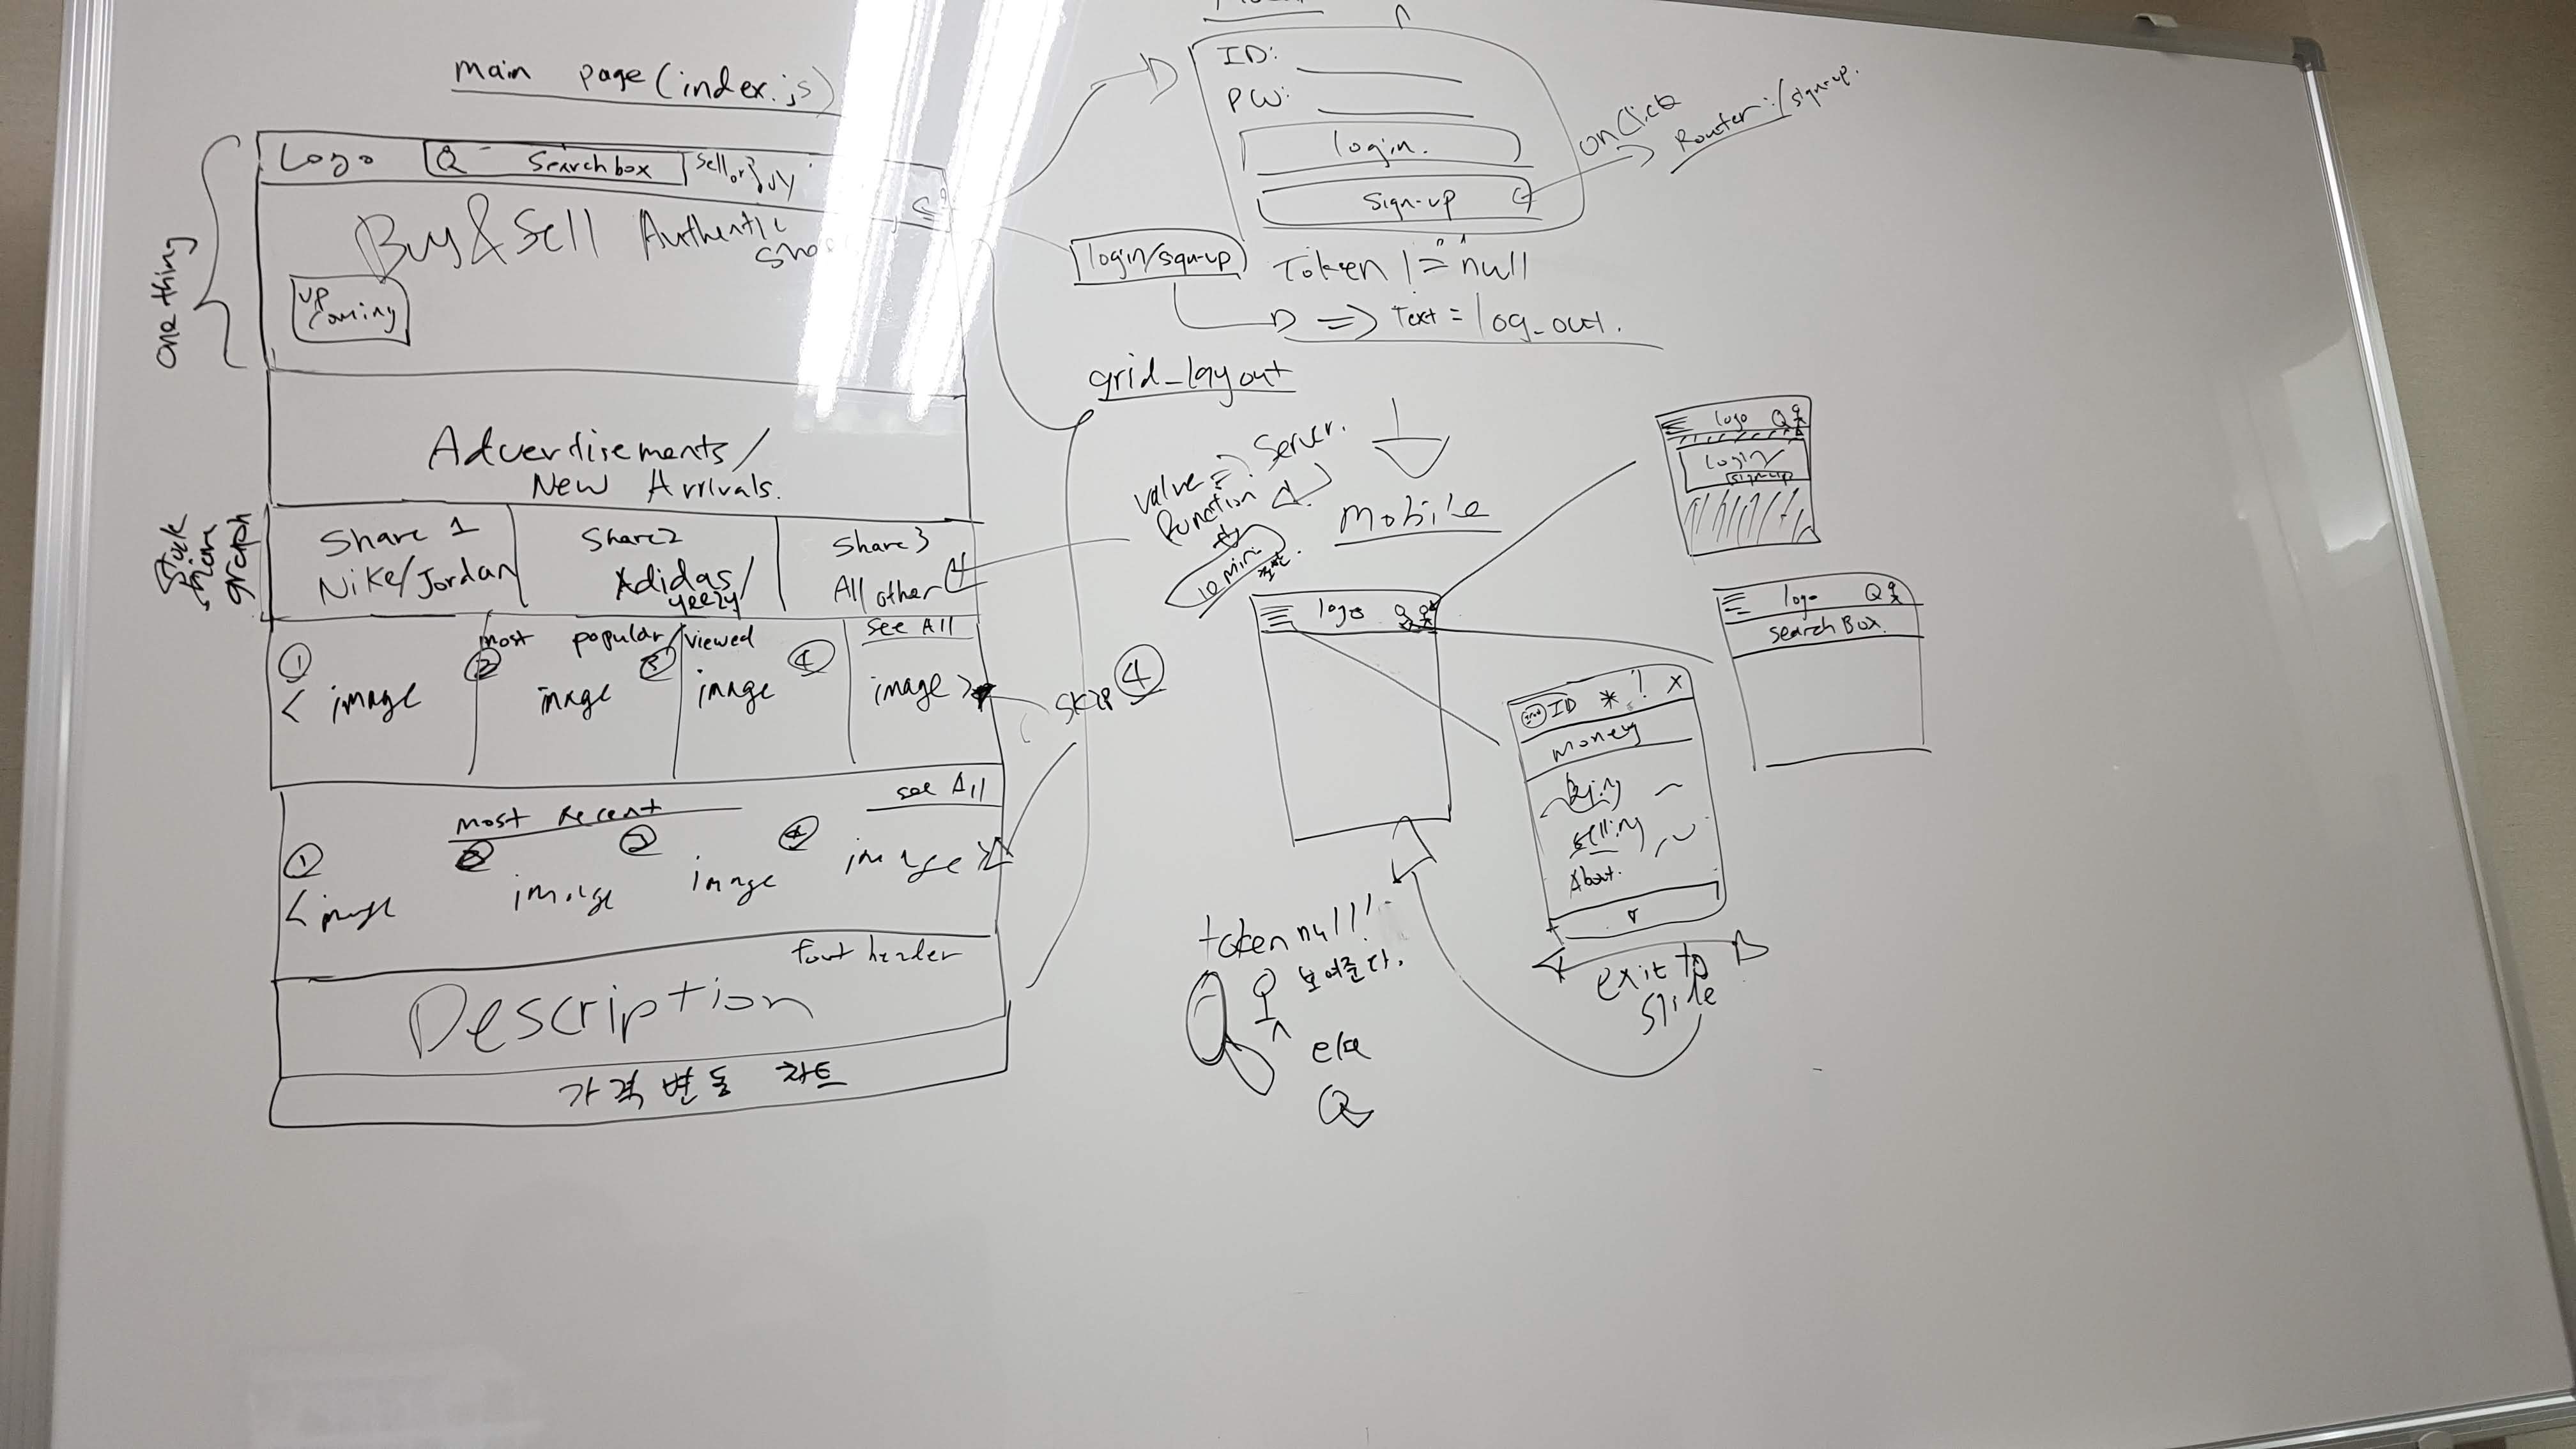 main page (index.js)
Logo
Searchbox
sell or buy
Buy & Sell Authentic
UP
Coming
one thing
Advertisements/
New Arrivals.
graph
Share 1
Nike/Jordan
Share 2
Adidas/
yeezy
Share 3
All other
most popular/viewed
see All
①
②
③
④
< image
image
image
image >
skip ④
most Recent
see All
①
②
④
< image
image
image
image >
header
Description
가격 변동 차트
ID:
PW:
login.
sign-up
onClick
Router:/sign-up.
login/sign-up
Token != null
=> Text = log_out.
grid_layout
value => Server.
function
10 min
Mobile
logo
logo
login/
sign-up
logo
search Box.
ID * ! X
money
selling
About.
exit to
slide
token null!
보여준다.
else